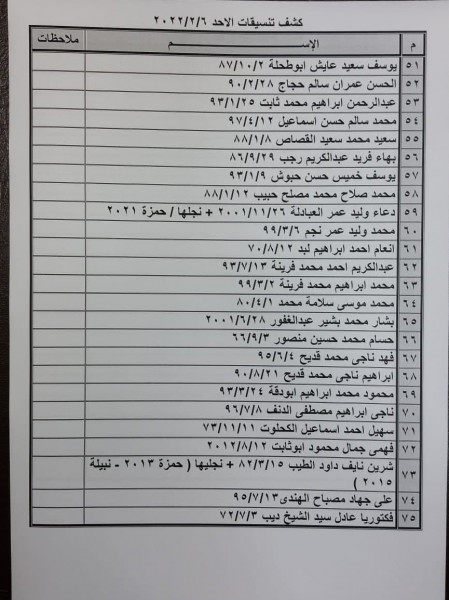 كشف تنسيقات الاحد ٢٠٢٢/٢/٦
م الإســـــم ملاحظات
٥١ يوسف سعيد عايش ابوطحلة ٨٧/١٠/٢
٥٢ الحسن عمران سالم حجاج ٩٠/٢/٢٨
٥٣ عبدالرحمن ابراهيم محمد ثابت ٩٣/١/٢٥
٥٤ محمد سالم حسن اسماعيل ٩٧/٤/١٢
٥٥ سعيد محمد سعيد القصاص ٨٨/١/٨
٥٦ بهاء فريد عبدالكريم رجب ٨٦/٩/٢٩
٥٧ يوسف خميس حسن حبوش ٩٣/١/٩
٥٨ محمد صلاح محمد مصلح حبيب ٨٨/١/١٢
٥٩ دعاء وليد عمر العبادلة ٢٠٠١/١١/٢٦ + نجلها / حمزة ٢٠٢١
٦٠ محمد وليد عمر نجم ٩٩/٣/٦
٦١ انعام احمد ابراهيم لبد ٧٠/٨/١٢
٦٢ عبدالكريم احمد محمد قرينة ٩٣/٧/١٣
٦٣ محمد ابراهيم محمد قرينة ٩٩/٣/٢
٦٤ محمد موسى سلامة محمد ٨٠/٤/١
٦٥ بشار محمد بشير عبدالغفور ٢٠٠١/٦/٢٨
٦٦ حسام محمد حسين منصور ٦٦/٩/٣
٦٧ فهد ناجى محمد قديح ٩٥/٦/٤
٦٨ ابراهيم ناجى محمد قديح ٩٠/٨/٢١
٦٩ محمود محمد ابراهيم ابودقة ٩٣/٣/٢٤
٧٠ ناجى ابراهيم مصطفى الدنف ٩٦/٧/٨
٧١ سهيل احمد اسماعيل الكحلوت ٧٣/١١/١١
٧٢ فهمى جمال محمود ابوثابت ٢٠١٢/٨/١٢
٧٣ شرين نايف داود الطيب ٨٢/٣/١٥ + نجليها ( حمزة ٢٠١٣ - نبيلة
٢٠١٥ )
٧٤ على جهاد مصباح الهندى ٩٥/٧/١٣
٧٥ فكتوريا عادل سيد الشيخ ديب ٧٢/٧/٣